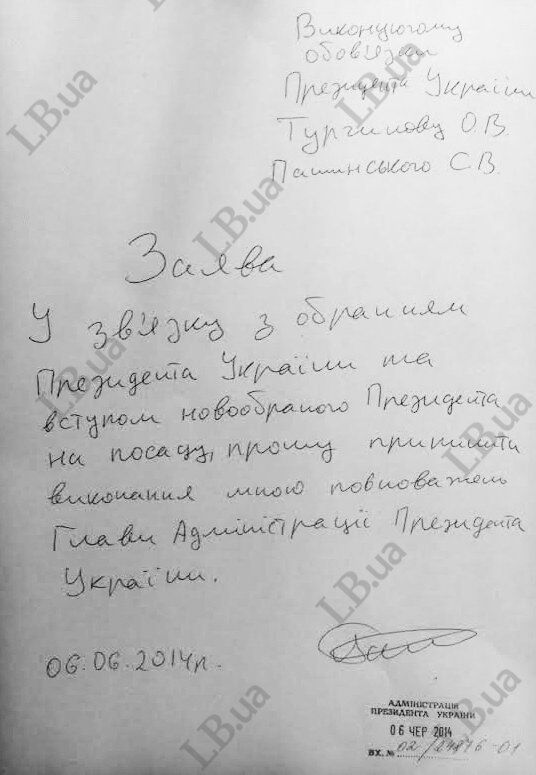 Виконуючому
обов'язки
Президента України
Турчинову О.В.
Пашинського С.В.
Заява
У зв'язку з обранням
Президента України та
вступом новообраного Президента
на посаду, прошу припинити
виконання мною повноважень
Глави Адміністрації Президента
України.
06.06.2014р.
АДМІНІСТРАЦІЯ
ПРЕЗИДЕНТА УКРАЇНИ
06 ЧЕР 2014
ВХ. № 02/ -01
LB.ua
LB.ua
LB.ua
LB.ua
LB.ua
LB.ua
LB.ua
LB.ua